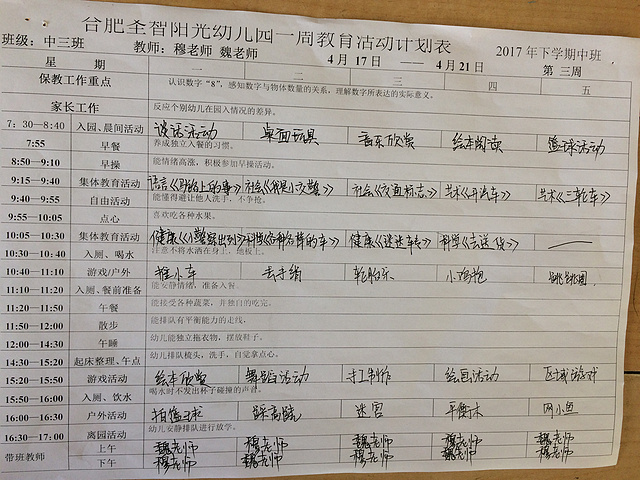 合肥圣智阳光幼儿园一周教育活动计划表
班级：中三班 教师：穆老师 魏老师 4月17日 —— 4月21日 2017年下学期中班
星 期 一 二 三 四 五 第 三 周
保教工作重点 认识数字“8”，感知数字与物体数量的关系，理解数字所表达的实际意义。
家长工作 反应个别幼儿在园入情况的差异。
7：30—8:40 入园、晨间活动 谈话活动 桌面玩具 音乐欣赏 绘本阅读 篮球活动
7:55 早餐 养成独立入餐的习惯。
8:50—9:10 早操 能情绪高涨，积极参加早操活动。
9:15—9:40 集体教育活动 语言《马路上的事》 社会《我是小交警》 社会《交通标志》 艺术《开汽车》 艺术《三轮车》
9:40—9:55 自由活动 能懂得避让他人洗手，不争抢。
9:55—10:05 点心 喜欢吃各种水果。
10:05—10:30 集体教育活动 健康《小警察出列》 科学《各种各样的车》 健康《迷迷转》 科学《去送货》 ——
10:30—10:40 入厕、喝水 注意不将水洒在身上、地板上。
10:40—11:10 游戏/户外 推小车 丢手绢 轮胎乐 小鸡抱 跳跳圈
11:10—11:20 入厕、餐前准备 能安静情绪，准备入餐
11:20—11:50 午餐 能接受各种蔬菜，并独自的吃完。
11:50—12:00 散步 能排队有平衡能力的走线，
12:00—14:30 午睡 幼儿能独立拖衣物，摆放鞋子。
14:30—15:20 起床整理、午点 幼儿排队梳头，洗手，自觉拿点心。
15:20—15:50 游戏活动 绘本欣赏 舞蹈活动 手工制作 绘画活动 区域游戏
15:50—16:00 入厕、饮水 喝水时不发出杯子碰撞的声音。
16:00—16:30 户外活动 拍篮球 踩高跷 迷宫 平衡木 网小鱼
16:30—17:00 离园活动 幼儿安静排队进行放学。
带班教师 上午 魏老师 穆老师 魏老师 穆老师 魏老师
下午 穆老师 魏老师 穆老师 魏老师 穆老师